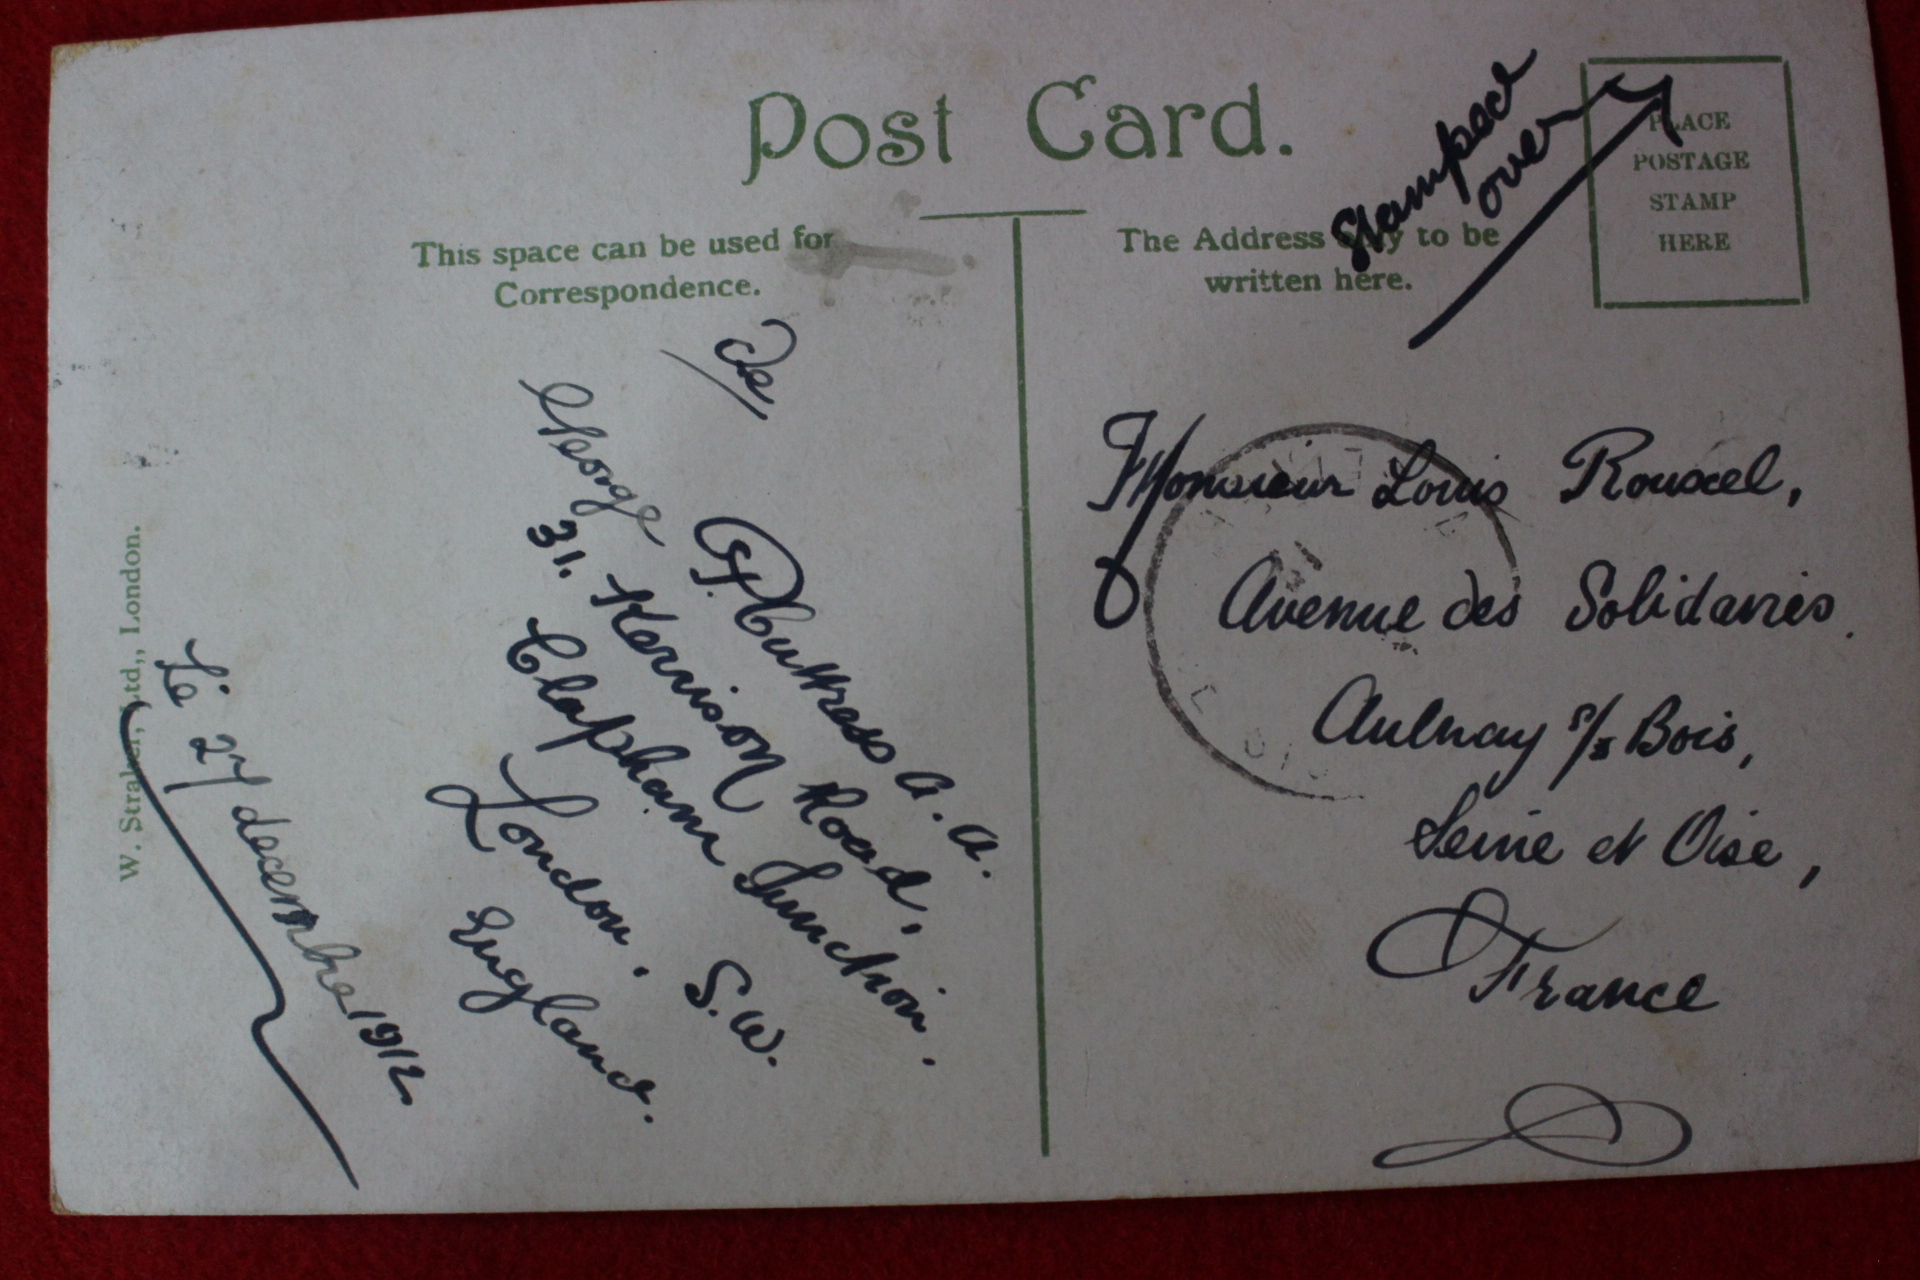 Post Card.
This space can be used for
Correspondence.
The Address to be
written here.
PLACE
POSTAGE
STAMP
HERE
Stamped
over
De
George
Buttress A.A.
31. Kerrison Road,
Clapham Junction.
London, S.W.
England.
Le 27 decembre 1912
W. Straker, Ltd., London.
Monsieur Louis Rouxel,
Avenue des Solidaires.
Aulnay s/s Bois,
Seine et Oise,
France